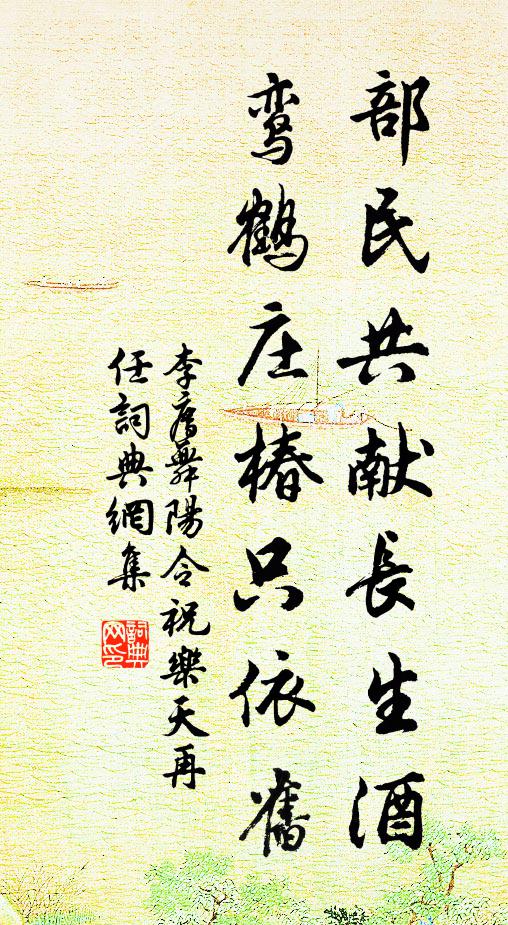 部民共献長生酒
鸾鶴庄椿只依舊
李廌舞陽令祝樂天再
任詞典網集
詞典網印